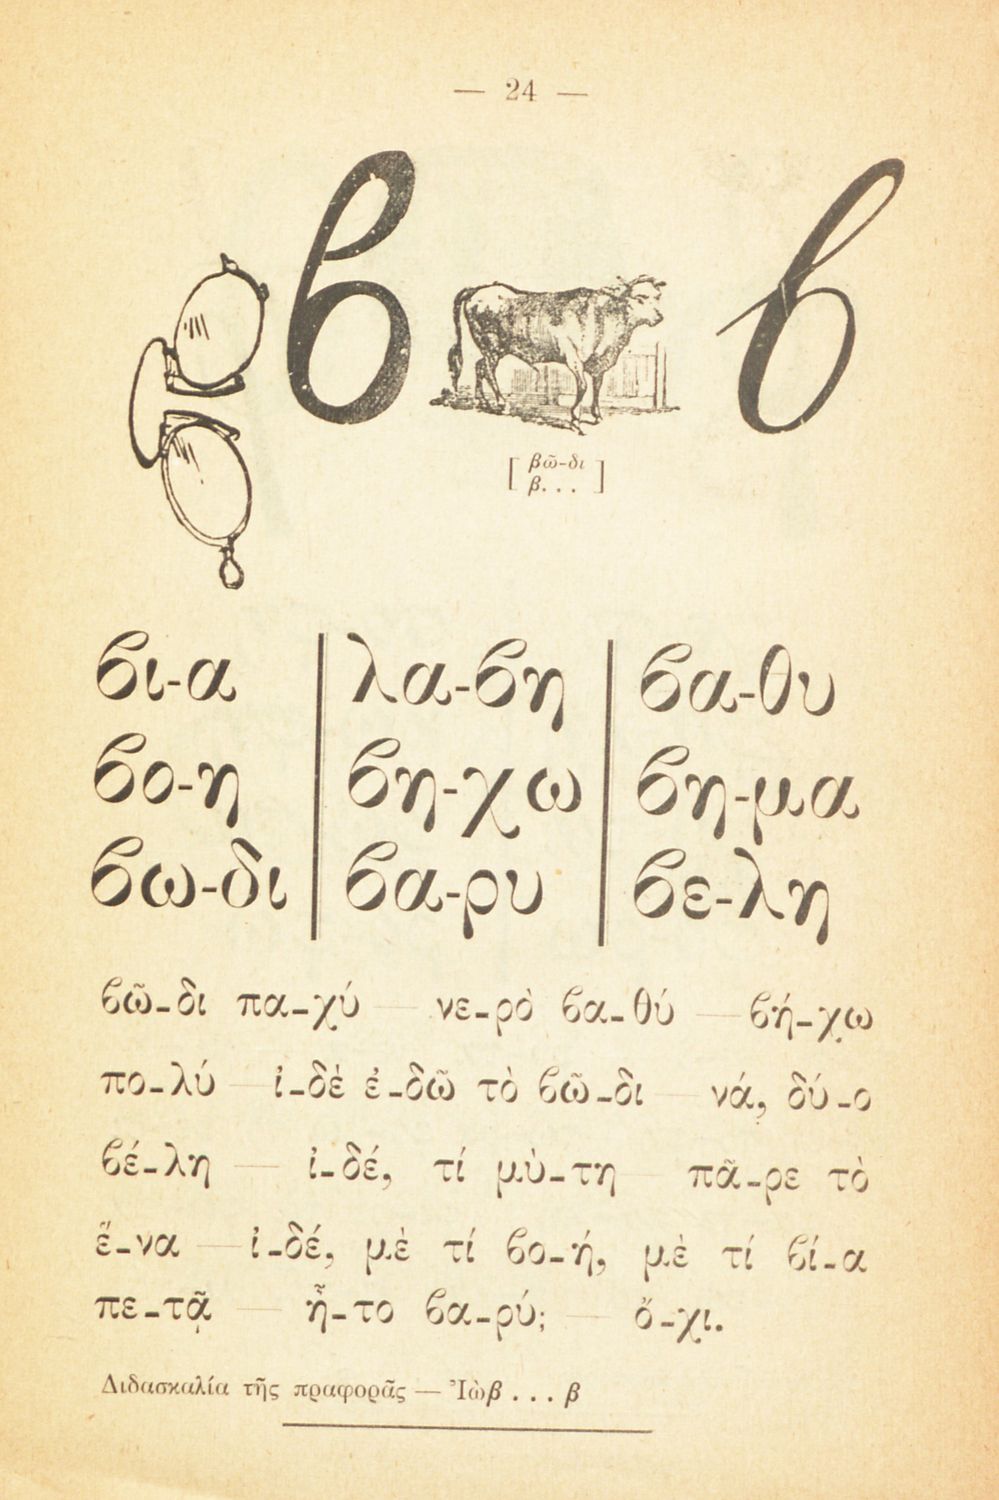 — 24 —
β β
[ βῶ-δι
β. . . ]
βι-α | λα-βη | βα-θυ
βο-η | βη-χω | βη-μα
βω-δι | βα-ρυ | βε-λη
βῶ-δι πα-χύ — νε-ρὸ βα-θύ — βή-χω
πο-λύ — ἰ-δὲ ἐ-δῶ τὸ βῶ-δι — νά, δύ-ο
βέ-λη — ἰ-δέ, τί μύ-τη — πᾶ-ρε τὸ
ἕ-να — ἰ-δέ, μὲ τί βο-ή, μὲ τί βί-α
πε-τᾷ — ἦ-το βα-ρύ; — ὄ-χι.
Διδασκαλία τῆς πραφορᾶς — Ἰὼβ . . . β